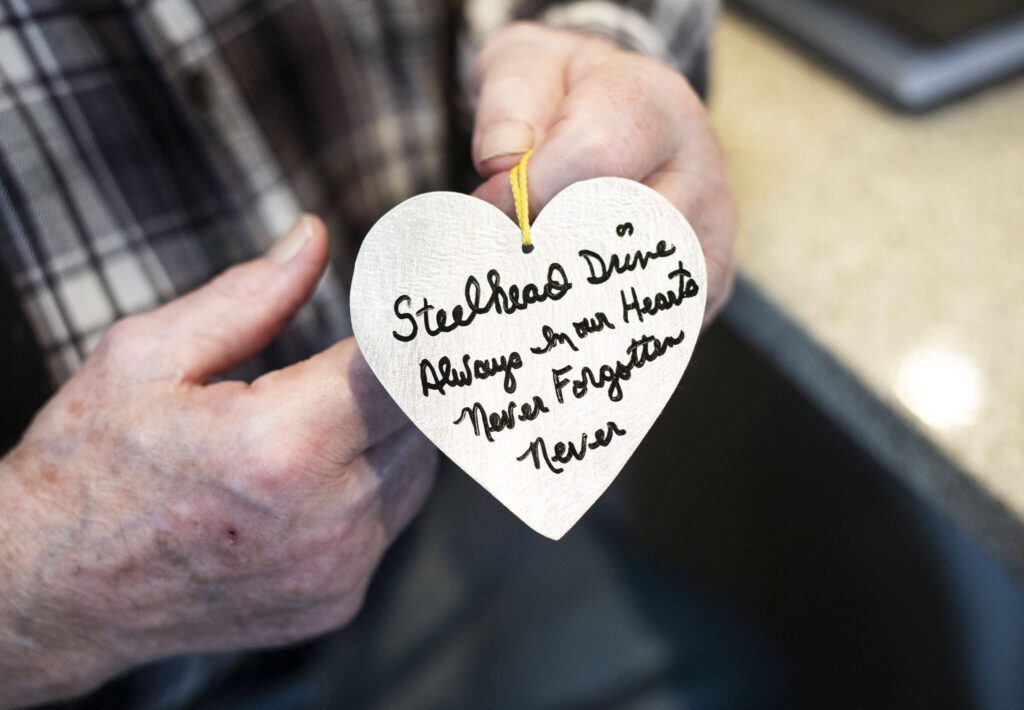 Steelhead Drive
Always In our Hearts
Never Forgotten
Never